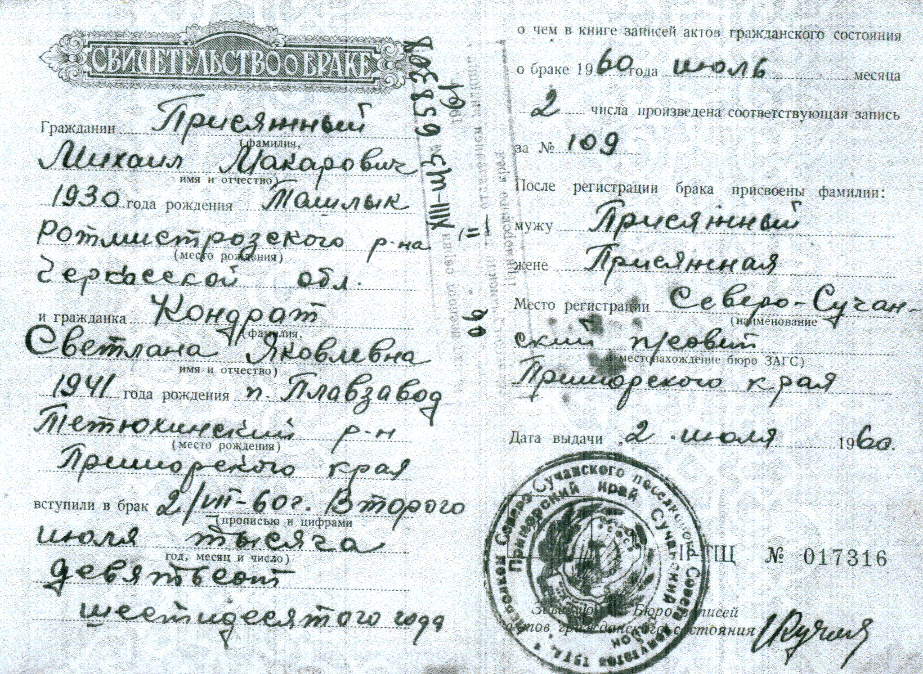 СВИДЕТЕЛЬСТВО О БРАКЕ
Гражданин Присяжный
(фамилия,
Михаил Макарович
имя и отчество)
1930 года рождения Ташлык
Ротмистрозского р-на
(место рождения)
Черкасской обл.
и гражданка Кондрат
(фамилия,
Светлана Яковлевна
имя и отчество)
1941 года рождения п. Плавзавод
Тетюхинский р-н
(место рождения)
Приморского края
вступили в брак 2/VII-60г. Второго
(прописью и цифрами
июля тысяча
год, месяц и число)
девятьсот
шестидесятого года
XIII-ЩЗ 658308
о чем в книге записей актов гражданского состояния
о браке 1960 года июль месяца
2 числа произведена соответствующая запись
за № 109
После регистрации брака присвоены фамилии:
мужу Присяжный
жене Присяжная
Место регистрации Северо-Сучан-
(наименование
ский п/совет
и местонахождение бюро ЗАГС)
Приморского края
Дата выдачи 2 июля 1960.
№ 017316
Бюро записей
актов гражданского состояния
Северо-Сучанского поселкового Совета депутатов
Приморский край Сучанский